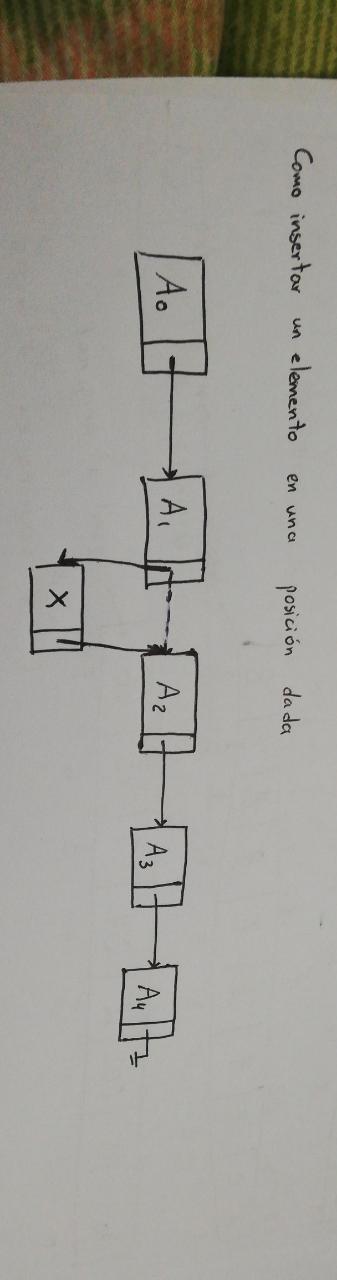 Como insertar un elemento en una posición dada
A₀ A₁ A₂ A₃ A₄
X